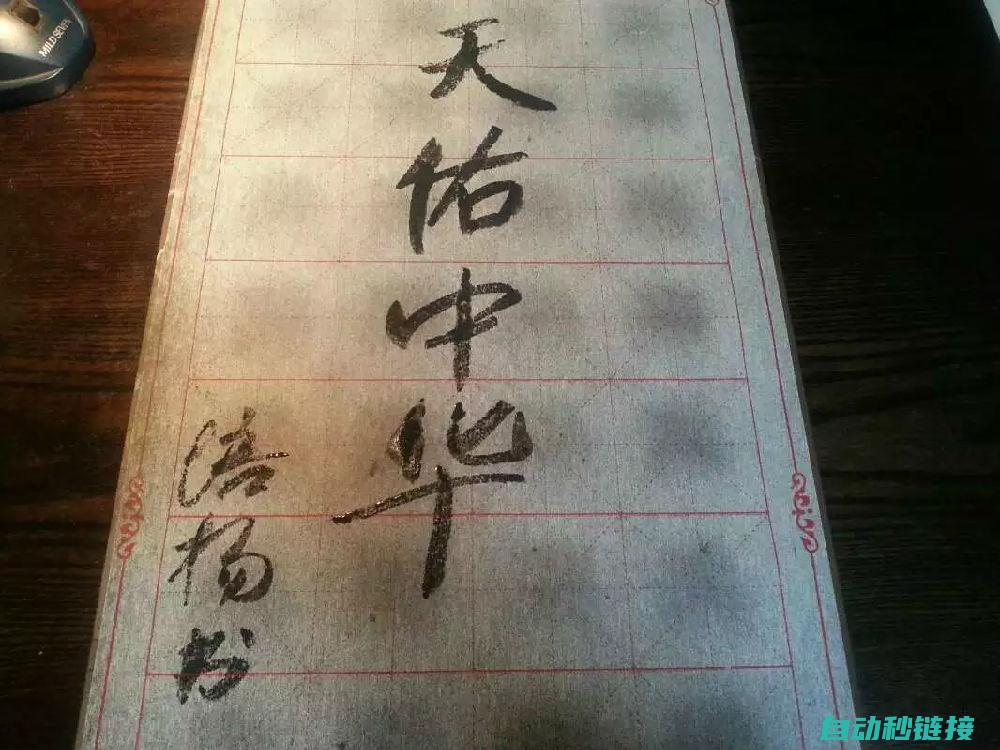 天佑中华
涪杨书
MILD SEVEN
自动秒链接